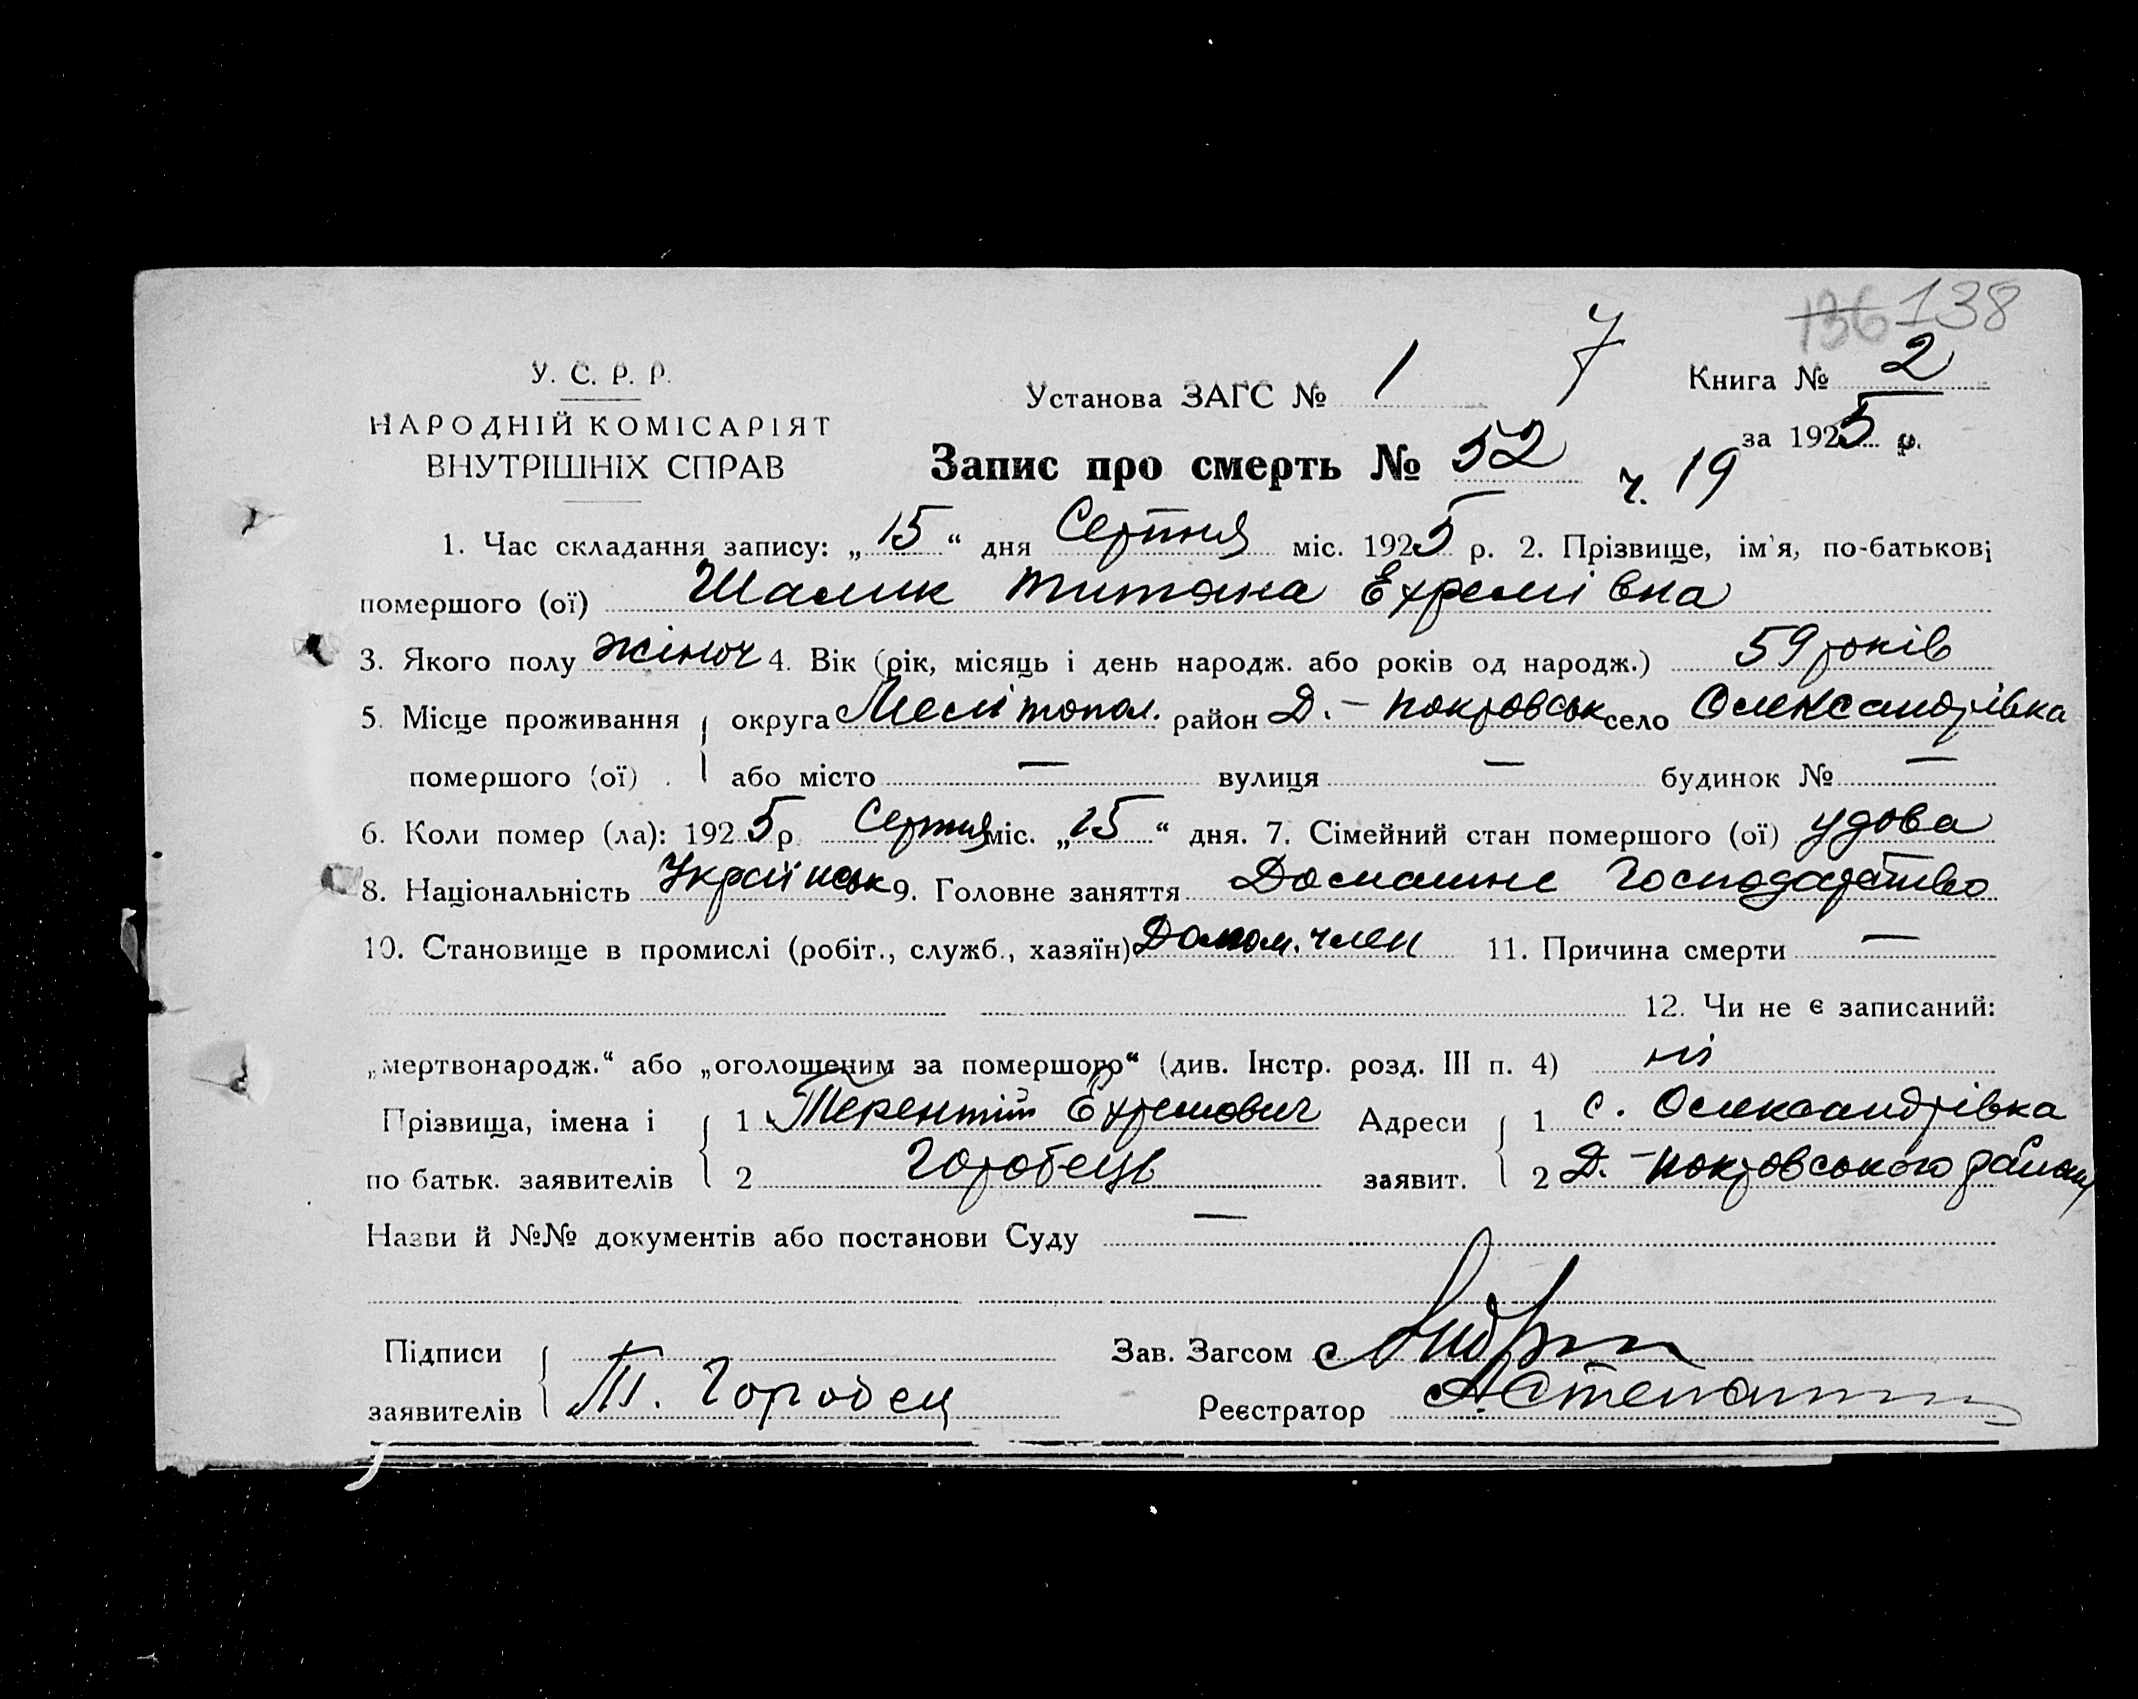 136 138
У. С. Р. Р.
НАРОДНІЙ КОМІСАРІЯТ
ВНУТРІШНІХ СПРАВ
Установа ЗАГС № 1 7 Книга № 2
за 1925 р.
Запис про смерть № 52 ч. 19
1. Час складання запису: „15“ дня Серпня міс. 1925 р. 2. Прізвище, ім'я, по-батькові
помершого (ої) Шалик Титяна Ехремівна
3. Якого полу жіноч 4. Вік (рік, місяць і день народж. або років од народж.) 59 років
5. Місце проживання округа Мелітопол. район Д.-покровськ село Олександрівка
помершого (ої) . або місто — вулиця — будинок № —
6. Коли помер (ла): 1925 р. Серпня міс. „15“ дня. 7. Сімейний стан помершого (ої) удова
8. Національність Українськ 9. Головне заняття Домашнє Господарство
10. Становище в промислі (робіт., служб., хазяїн) Допом. член 11. Причина смерти —
12. Чи не є записаний:
„мертвонародж.“ або „оголошеним за помершого“ (див. Інстр. розд. III п. 4) ні
Прізвища, імена і 1 Терентій Ехремович Адреси 1 с. Олександрівка
по батьк. заявителів 2 Горобець заявит. 2 Д.-покровського району
Назви й №№ документів або постанови Суду —
Підписи Зав. Загсом
заявителів Т. Горобец Реєстратор